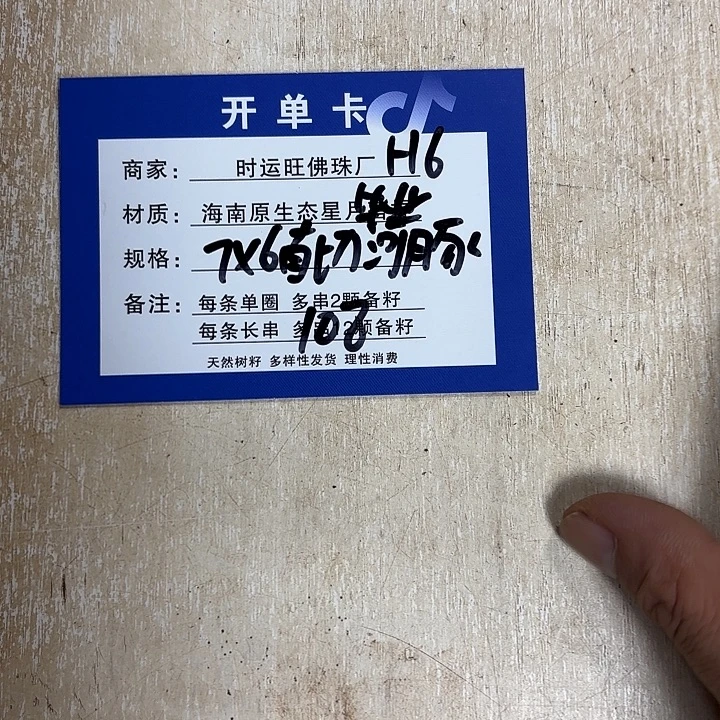 开单卡
商家: 时运旺佛珠厂 H6
材质: 海南原生态星月 毕业
规格: 7X6直切 海豚
备注: 每条单圈 多串2颗备籽
每条长串 多串12颗备籽 108
天然树籽 多样性发货 理性消费